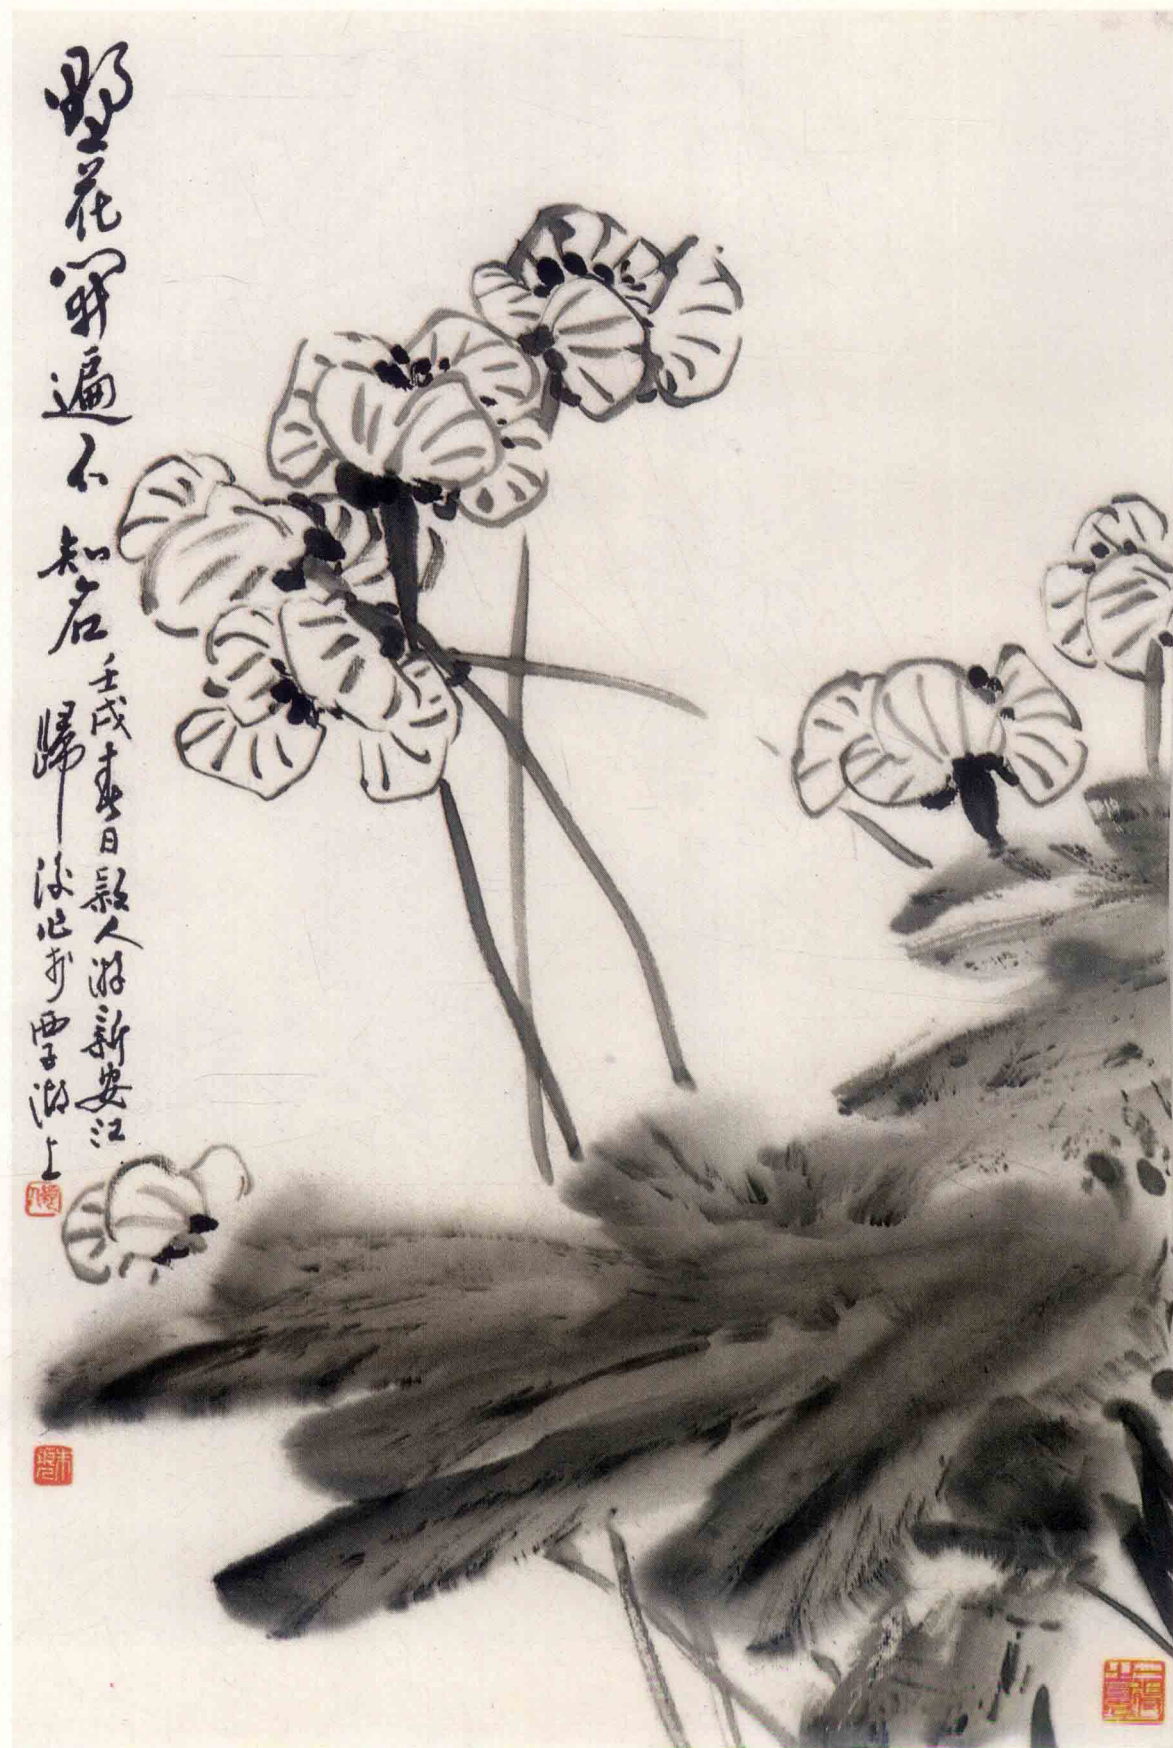 野花開遍不知名
壬戌春日歙人游新安江
歸後作於覃湖上